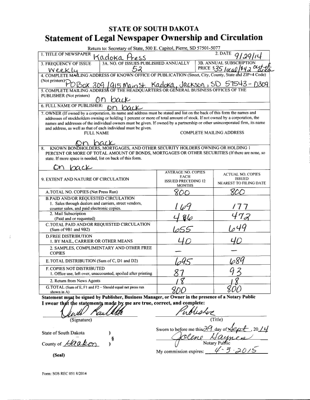 STATE OF SOUTH DAKOTA
Statement of Legal Newspaper Ownership and Circulation
Return to: Secretary of State, 500 E. Capitol, Pierre, SD 57501-5077
1. TITLE OF NEWSPAPER Kadoka Press 2. DATE 9/29/14
3. FREQUENCY OF ISSUE Weekly 3A. NO. OF ISSUES PUBLISHED ANNUALLY 52 3B. ANNUAL SUBSCRIPTION PRICE
4. COMPLETE MAILING ADDRESS OF KNOWN OFFICE OF PUBLICATION (Street, City, County, State and ZIP+4 Code)
(Not printers) PO Box 309 / 915 Main St. Kadoka, Jackson, SD 57543-0309
5. COMPLETE MAILING ADDRESS OF THE HEADQUARTERS OR GENERAL BUSINESS OFFICES OF THE
PUBLISHER (Not printers) on back
6. FULL NAME OF PUBLISHER: on back
7. OWNER (If owned by a corporation, its name and address must be stated and list on the back of this form the names and
addresses of stockholders owning or holding 1 percent or more of total amount of stock. If not owned by a corporation, the
names and addresses of the individual owners must be given. If owned by a partnership or other unincorporated firm, its name
and address, as well as that of each individual must be given.
FULL NAME COMPLETE MAILING ADDRESS
on back
8. KNOWN BONDHOLDERS, MORTGAGEES, AND OTHER SECURITY HOLDERS OWNING OR HOLDING 1
PERCENT OR MORE OF TOTAL AMOUNT OF BONDS, MORTGAGES OR OTHER SECURITIES (If there are none, so
state. If more space is needed, list on back of this form.
on back
9. EXTENT AND NATURE OF CIRCULATION
AVERAGE NO. COPIES
EACH
ISSUED PRECEDING 12
MONTHS
ACTUAL NO. COPIES
ISSUED
NEAREST TO FILING DATE
A. TOTAL NO. COPIES (Net Press Run) 800 800
B. PAID AND/OR REQUESTED CIRCULATION
1. Sales through dealers and carriers, street vendors,
counter sales, and paid electronic copies. 169 177
2. Mail Subscription
(Paid and or requested) 486 472
C. TOTAL PAID AND/OR REQUESTED CIRCULATION
(Sum of 9B1 and 9B2) 655 649
D. FREE DISTRIBUTION
1. BY MAIL, CARRIER OR OTHER MEANS 40 40
2. SAMPLES, COMPLIMENTARY AND OTHER FREE
COPIES
E. TOTAL DISTRIBUTION (Sum of C, D1 and D2) 695 689
F. COPIES NOT DISTRIBUTED
1. Office use, left over, unaccounted, spoiled after printing 87 93
2. Return from News Agents 18 18
G. TOTAL (Sum of E, F1 and F2 - Should equal net press run
shown in A) 800 800
Statement must be signed by Publisher, Business Manager, or Owner in the presence of a Notary Public
I swear that the statements made by me are true, correct, and complete:
Publisher
(Signature) (Title)
State of South Dakota )
§
County of Haakon )
(Seal)
Sworn to before me this 29 day of Sept, 2014
Notary Public
My commission expires: 4-3-2015
Form: SOS REC 051 8/2014